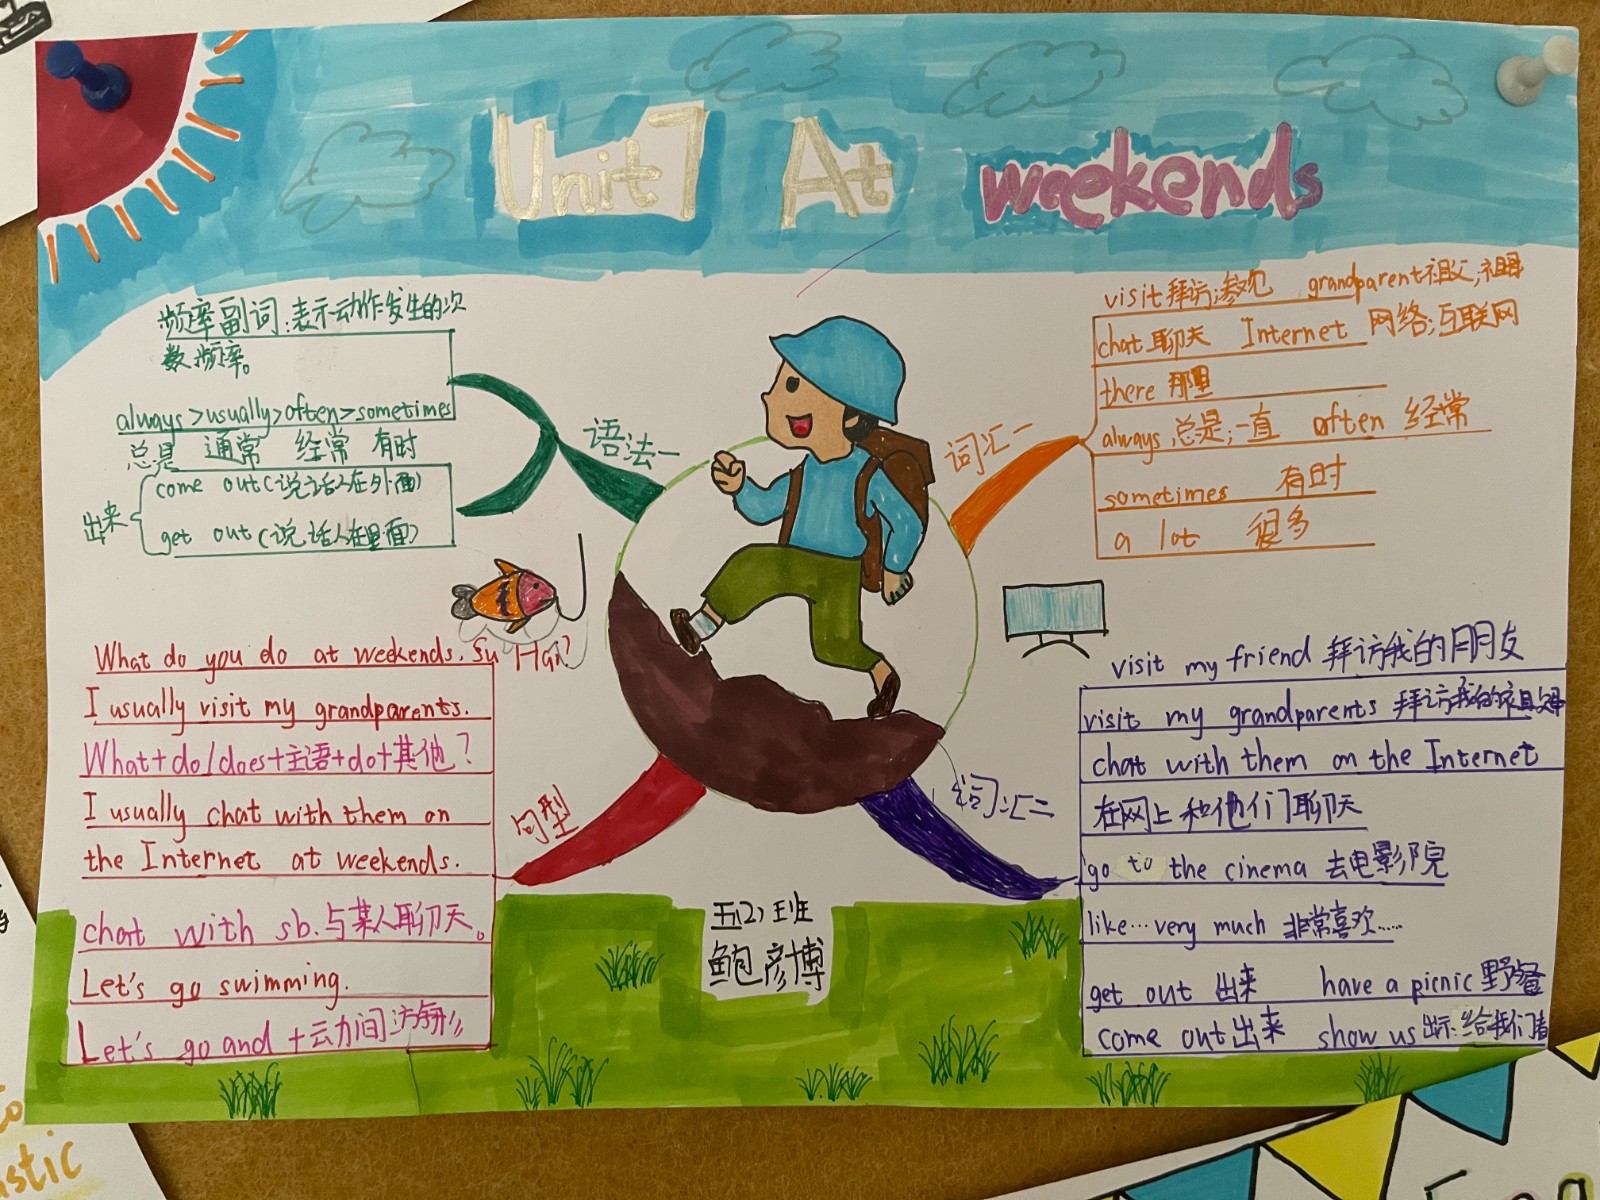 Unit7 At weekends
频率副词:表示动作发生的次
数频率。
always>usually>often>sometimes
总是 通常 经常 有时
出来
come out(说话人在外面)
get out(说话人在里面)
语法一
词汇一
visit拜访;参观 grandparent祖父;祖母
chat聊天 Internet 网络;互联网
there 那里
always 总是;一直 often 经常
sometimes 有时
a lot 很多
What do you do at weekends, Su Hai?
I usually visit my grandparents.
What+do/does+主语+do+其他?
I usually chat with them on
the Internet at weekends.
chat with sb.与某人聊天。
Let's go swimming.
Let's go and +动词
句型
词汇二
visit my friend 拜访我的朋友
visit my grandparents 拜访我的祖父母
chat with them on the Internet
在网上和他们聊天
go to the cinema 去电影院
like…very much 非常喜欢……
get out 出来 have a picnic 野餐
come out 出来 show us 出示;给我们看
五(2)班
鲍彦博
stic